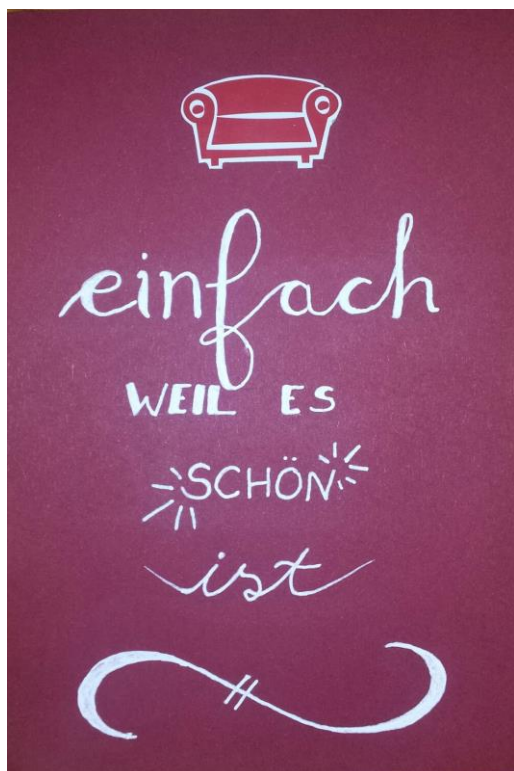 einfach
WEIL ES
SCHÖN
ist